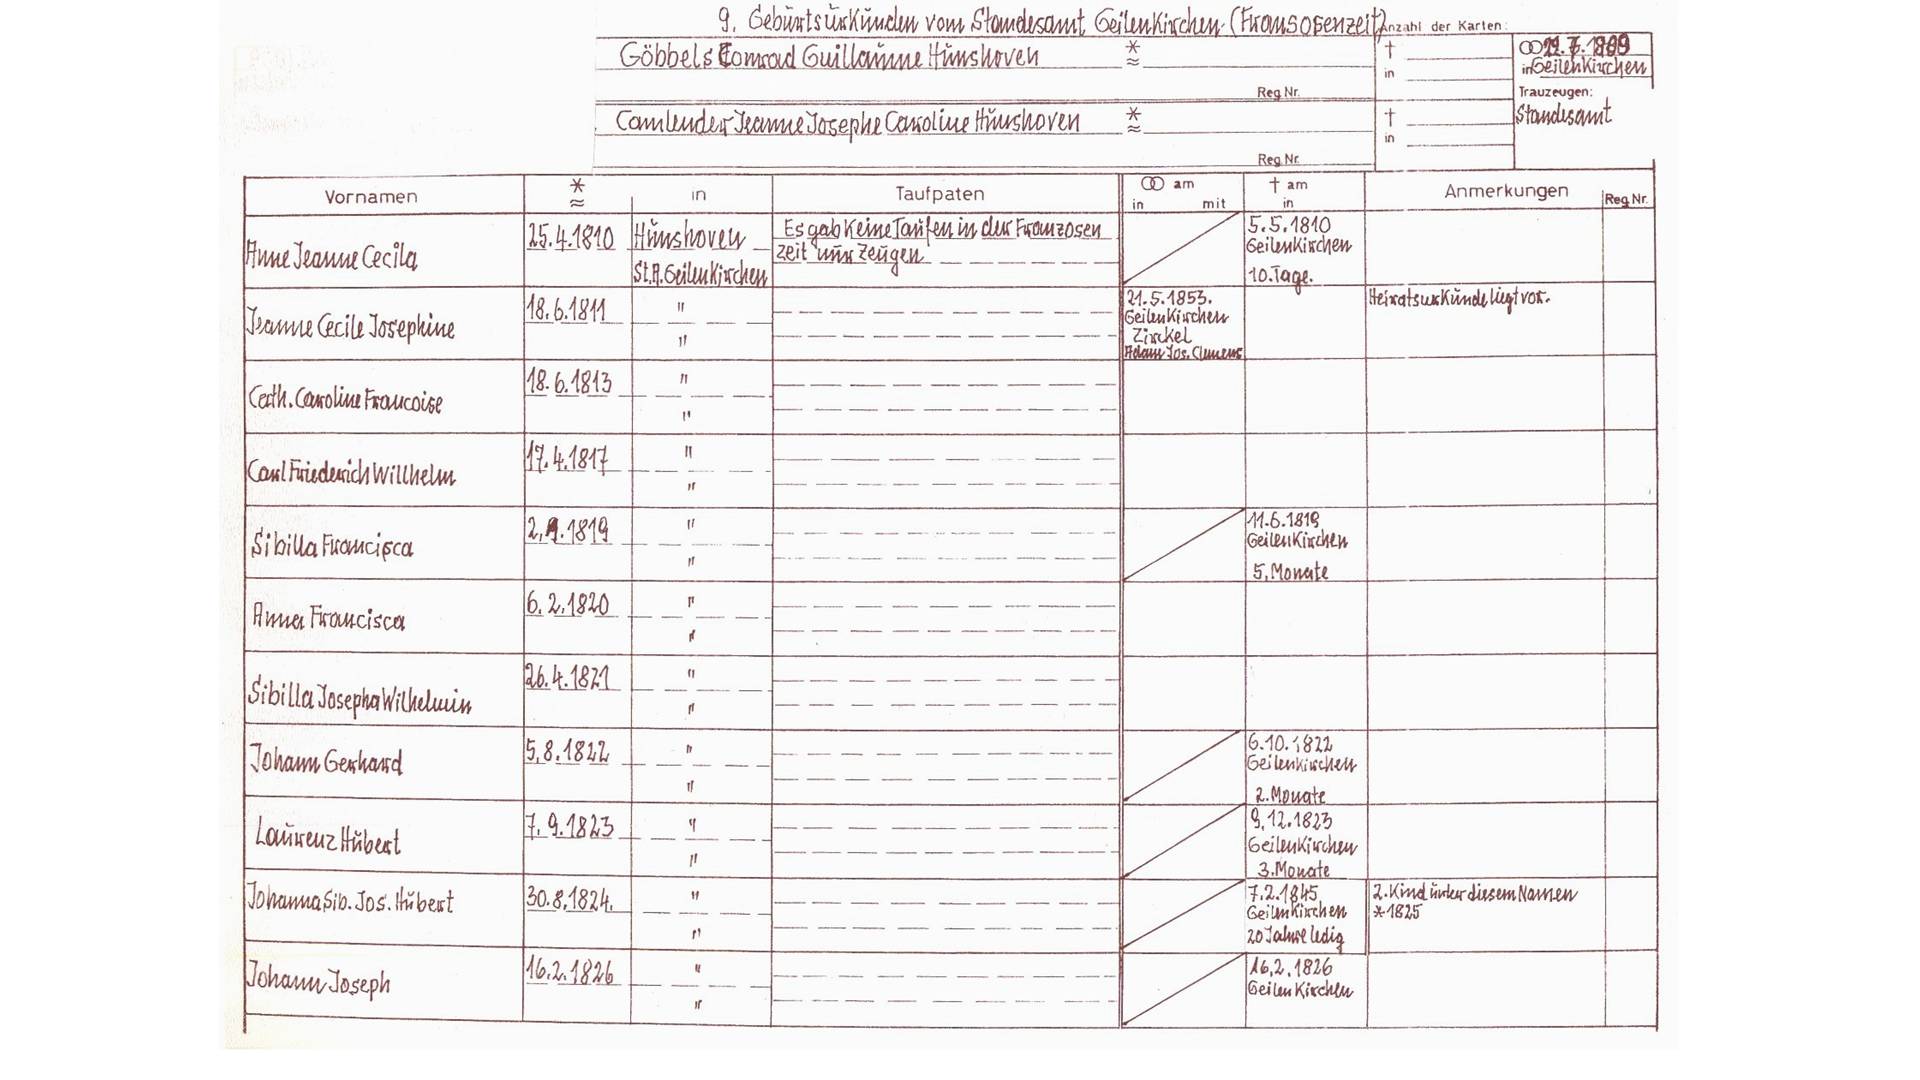 9. Geburtsurkunden vom Standesamt Geilenkirchen (Fransosenzeit) Anzahl der Karten:
Göbbels Conrad Guillaume Hünshoven * ≈ † in
Reg. Nr.
Camlender Jeanne Josephe Caroline Hünshoven * ≈ † in
Reg. Nr.
⚭ 7. 1809
in Geilenkirchen
Trauzeugen:
Standesamt
Vornamen * ≈ in Taufpaten ⚭ am in mit † am in Anmerkungen Reg. Nr.
Anne Jeanne Cecila 25.4.1810 Hünshoven Es gab keine Taufen in der Franzosen 5.5.1810
St.A. Geilenkirchen zeit nur Zeugen Geilenkirchen
10. Tage.
Jeanne Cecile Josephine 18.6.1811 " 21.5.1853. Heiratsurkunde liegt vor.
" Geilenkirchen
Zirckel
Adam Jos. Clemens
Cath. Caroline Francoise 18.6.1813 "
"
Carl Friederich Willhelm 17.4.1817 "
"
Sibilla Francisca 2. 1819 " 11.6.1819
" Geilenkirchen
5. Monate
Anna Francisca 6.2.1820 "
"
Sibilla Josepha Wilhelmin 26.4.1821 "
"
Johann Gerhard 5.8.1822 " 6.10.1822
" Geilenkirchen
2. Monate
Laurenz Hubert 7.9.1823 " 9.12.1823
" Geilenkirchen
3. Monate
Johanna Sib. Jos. Hubert 30.8.1824. " 7.2.1845 2. Kind unter diesem Namen
" Geilenkirchen * 1825
20 Jahre ledig
Johann Joseph 16.2.1826 " 16.2.1826
" Geilenkirchen